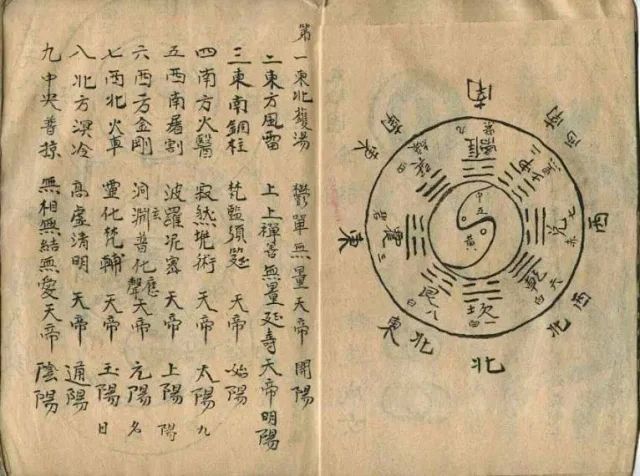 第一東北鑊湯 鬱單無量天帝 開陽
二東方風雷 上上禪善無量延壽天帝明陽
三東南銅柱 梵監須延 天帝 始陽
四南方火翳 寂然兜術 天帝 太陽 九
五西南屠割 波羅尼蜜 天帝 上陽 陽
六西方金剛 洞玄淵普化應聲天帝 元陽 名
七西北火車 靈化梵輔 天帝 玉陽 日
八北方溟冷 高虛清明 天帝 通陽
九中央普掠 無相無結無愛天帝 陰陽
南
西南
西
西北
北
東北
東
東南
離 九
二
兌 七 赤
乾 六 白
坎 一 白
艮 八 白
三
四
中五黃